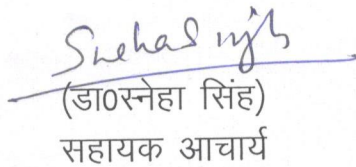 Sneha Singh
(डा0स्नेहा सिंह)
सहायक आचार्य